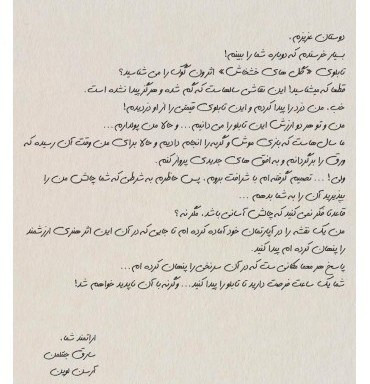 دوستان عزیزم.
بسیار خرسندم که دوباره شما را ببینم!
تابلوی «گل های خشخاش» اثر ون گوگ را می شناسید؟
قطعا که میشناسید! این نقاشی سالهاست که گم شده و هرگز پیدا نشده است.
خب. من دزد را پیدا کردم و این تابلوی قیمتی را از او دزدیدم!
من و تو هر دو ارزش این تابلو را می دانیم ... و حالا من پولدارم ...
ما سال هاست که بازی موش و گربه را انجام دادیم و حالا برای من وقت آن رسیده که
ورق را برگردانم و به افق های جدیدی پرواز کنم.
ولی! ... تصمیم گرفته ام با شرافت بروم. پس حاضرم به شرطی که شما چالش من را
بپذیرید آن را به شما بدهم ...
قاعدتا فکر نمی کنید که چالش آسانی باشد. مگر نه؟
من یک نقشه را در آپارتمان خود آماده کرده ام تا جایی که در آن این اثر هنری ارزشمند
را پنهان کرده ام پیدا کنید.
پاسخ هر معما مکانی ست که در آن سرنخی را پنهان کرده ام ...
شما یک ساعت فرصت دارید تا تابلو را پیدا کنید ... وگرنه با آن ناپدید خواهم شد!
ارادتمند شما.
سارق جنتلمن
آرسن لوپن